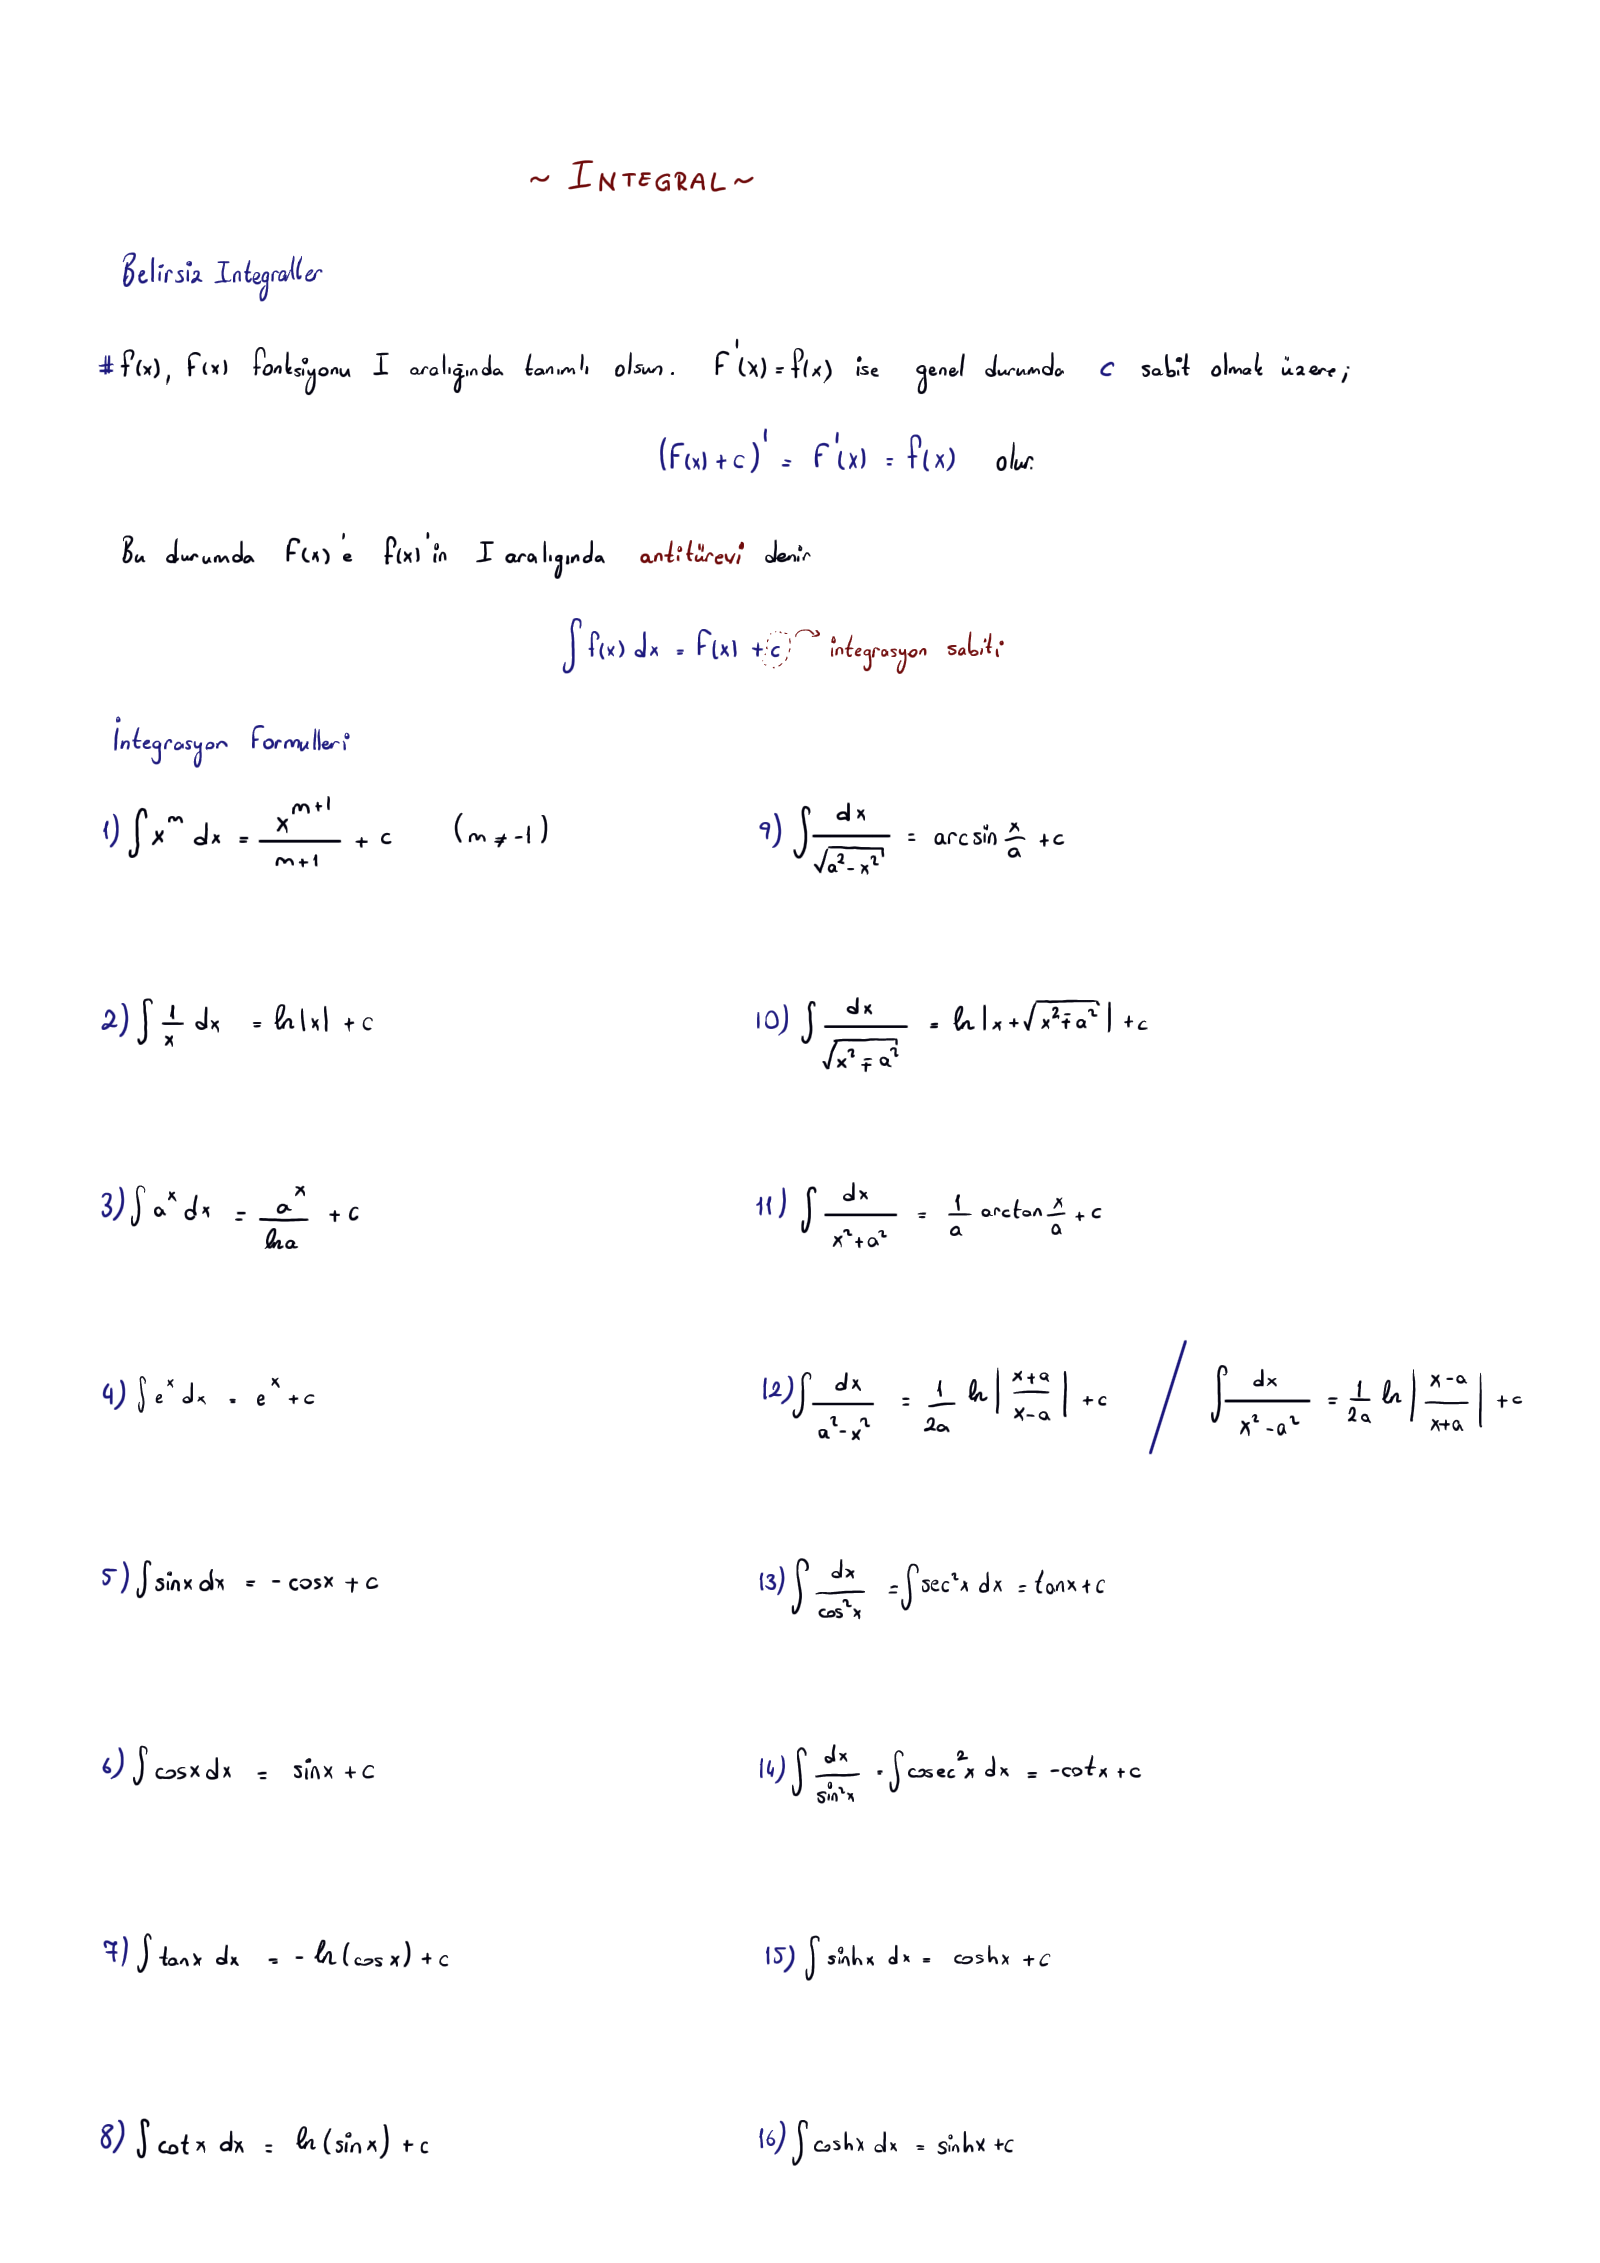 ~ INTEGRAL ~
Belirsiz Integraller
# f(x), F(x) fonksiyonu I aralığında tanımlı olsun. F'(x) = f(x) ise genel durumda c sabit olmak üzere;
(F(x) + c)' = F'(x) = f(x) olur.
Bu durumda F(x)'e f(x)'in I aralıgında antitürevi denir
∫ f(x) dx = F(x) + c → integrasyon sabiti
İntegrasyon Formulleri
1) ∫ x^m dx = x^(m+1)/(m+1) + c (m ≠ -1)
2) ∫ 1/x dx = ln|x| + c
3) ∫ a^x dx = a^x/lna + c
4) ∫ e^x dx = e^x + c
5) ∫ sinx dx = - cosx + c
6) ∫ cosx dx = sinx + c
7) ∫ tanx dx = - ln(cosx) + c
8) ∫ cotx dx = ln(sinx) + c
9) ∫ dx/√(a² - x²) = arcsin x/a + c
10) ∫ dx/√(x² ∓ a²) = ln|x + √(x² ∓ a²)| + c
11) ∫ dx/(x² + a²) = 1/a arctan x/a + c
12) ∫ dx/(a² - x²) = 1/2a ln|(x+a)/(x-a)| + c / ∫ dx/(x² - a²) = 1/2a ln|(x-a)/(x+a)| + c
13) ∫ dx/cos²x = ∫ sec²x dx = tanx + c
14) ∫ dx/sin²x = ∫ cosec²x dx = -cotx + c
15) ∫ sinhx dx = coshx + c
16) ∫ coshx dx = sinhx + c